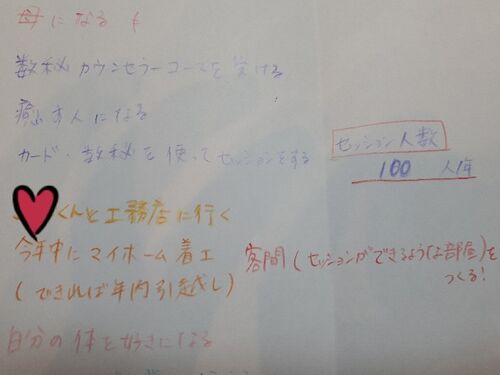 母になる
数秘カウンセラーコースを受ける
癒す人になる
カード・数秘を使ってセッションをする
セッション人数
100 人/年
くんと工務店に行く
今年中にマイホーム着工
(できれば年内引越し)
客間(セッションができるような部屋)を
つくる!
自分の体を好きになる